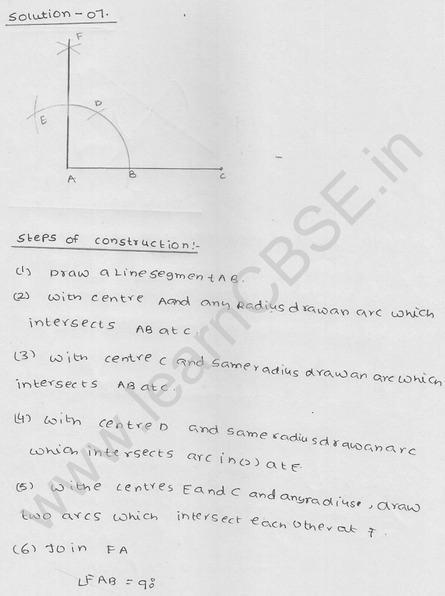 Solution-07.
F
E
D
A
B
C
Steps of construction:-
(1) Draw a Line segment AB.
(2) with centre A and any Radius draw an arc which
intersects AB at C.
(3) with centre C and same radius draw an arc which
intersects AB at C.
(4) with centre D and same radius draw an arc
which intersects arc in (2) at E
(5) withe centres E and C and any radius, draw
two arcs which intersect each other at F.
(6) Join FA
∠FAB = 90°
www.learnCBSE.in